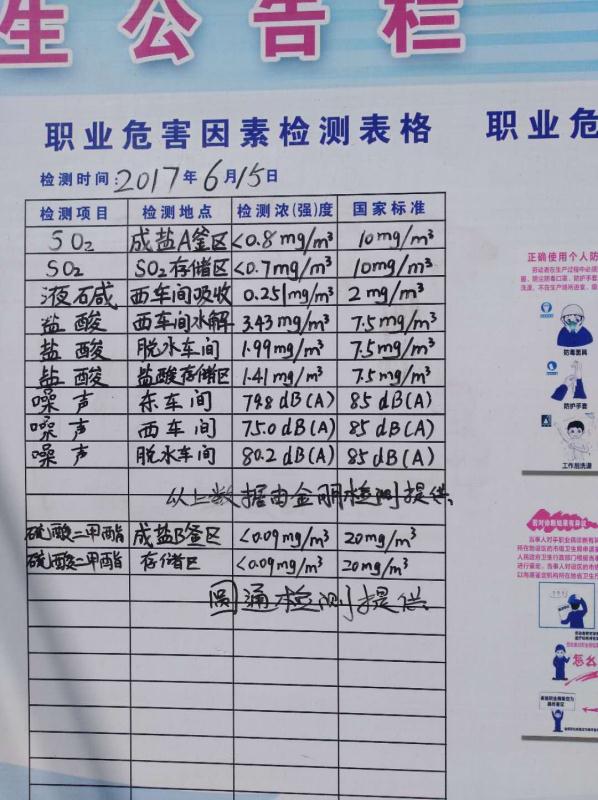 生公告栏
职业危害因素检测表格
职业危
检测时间:2017年6月15日
检测项目 检测地点 检测浓(强)度 国家标准
SO₂ 成盐A釜区 <0.8mg/m³ 10mg/m³
SO₂ SO₂存储区 <0.7mg/m³ 10mg/m³
液碱 西车间吸收 0.251mg/m³ 2mg/m³
盐酸 西车间水解 3.43mg/m³ 7.5mg/m³
盐酸 脱水车间 1.99mg/m³ 7.5mg/m³
盐酸 盐酸存储区 1.41mg/m³ 7.5mg/m³
噪声 东车间 79.8dB(A) 85dB(A)
噪声 西车间 75.0dB(A) 85dB(A)
噪声 脱水车间 80.2dB(A) 85dB(A)
以上数据由金丽检测提供.
硫酸二甲酯 成盐B釜区 <0.09mg/m³ 20mg/m³
硫酸二甲酯 存储区 <0.09mg/m³ 20mg/m³
圆通检测提供.
正确使用个人防
劳动者在生产过程中必须
防毒面具
防护手套
工作后洗澡
若对诊断结果有异议
怎么